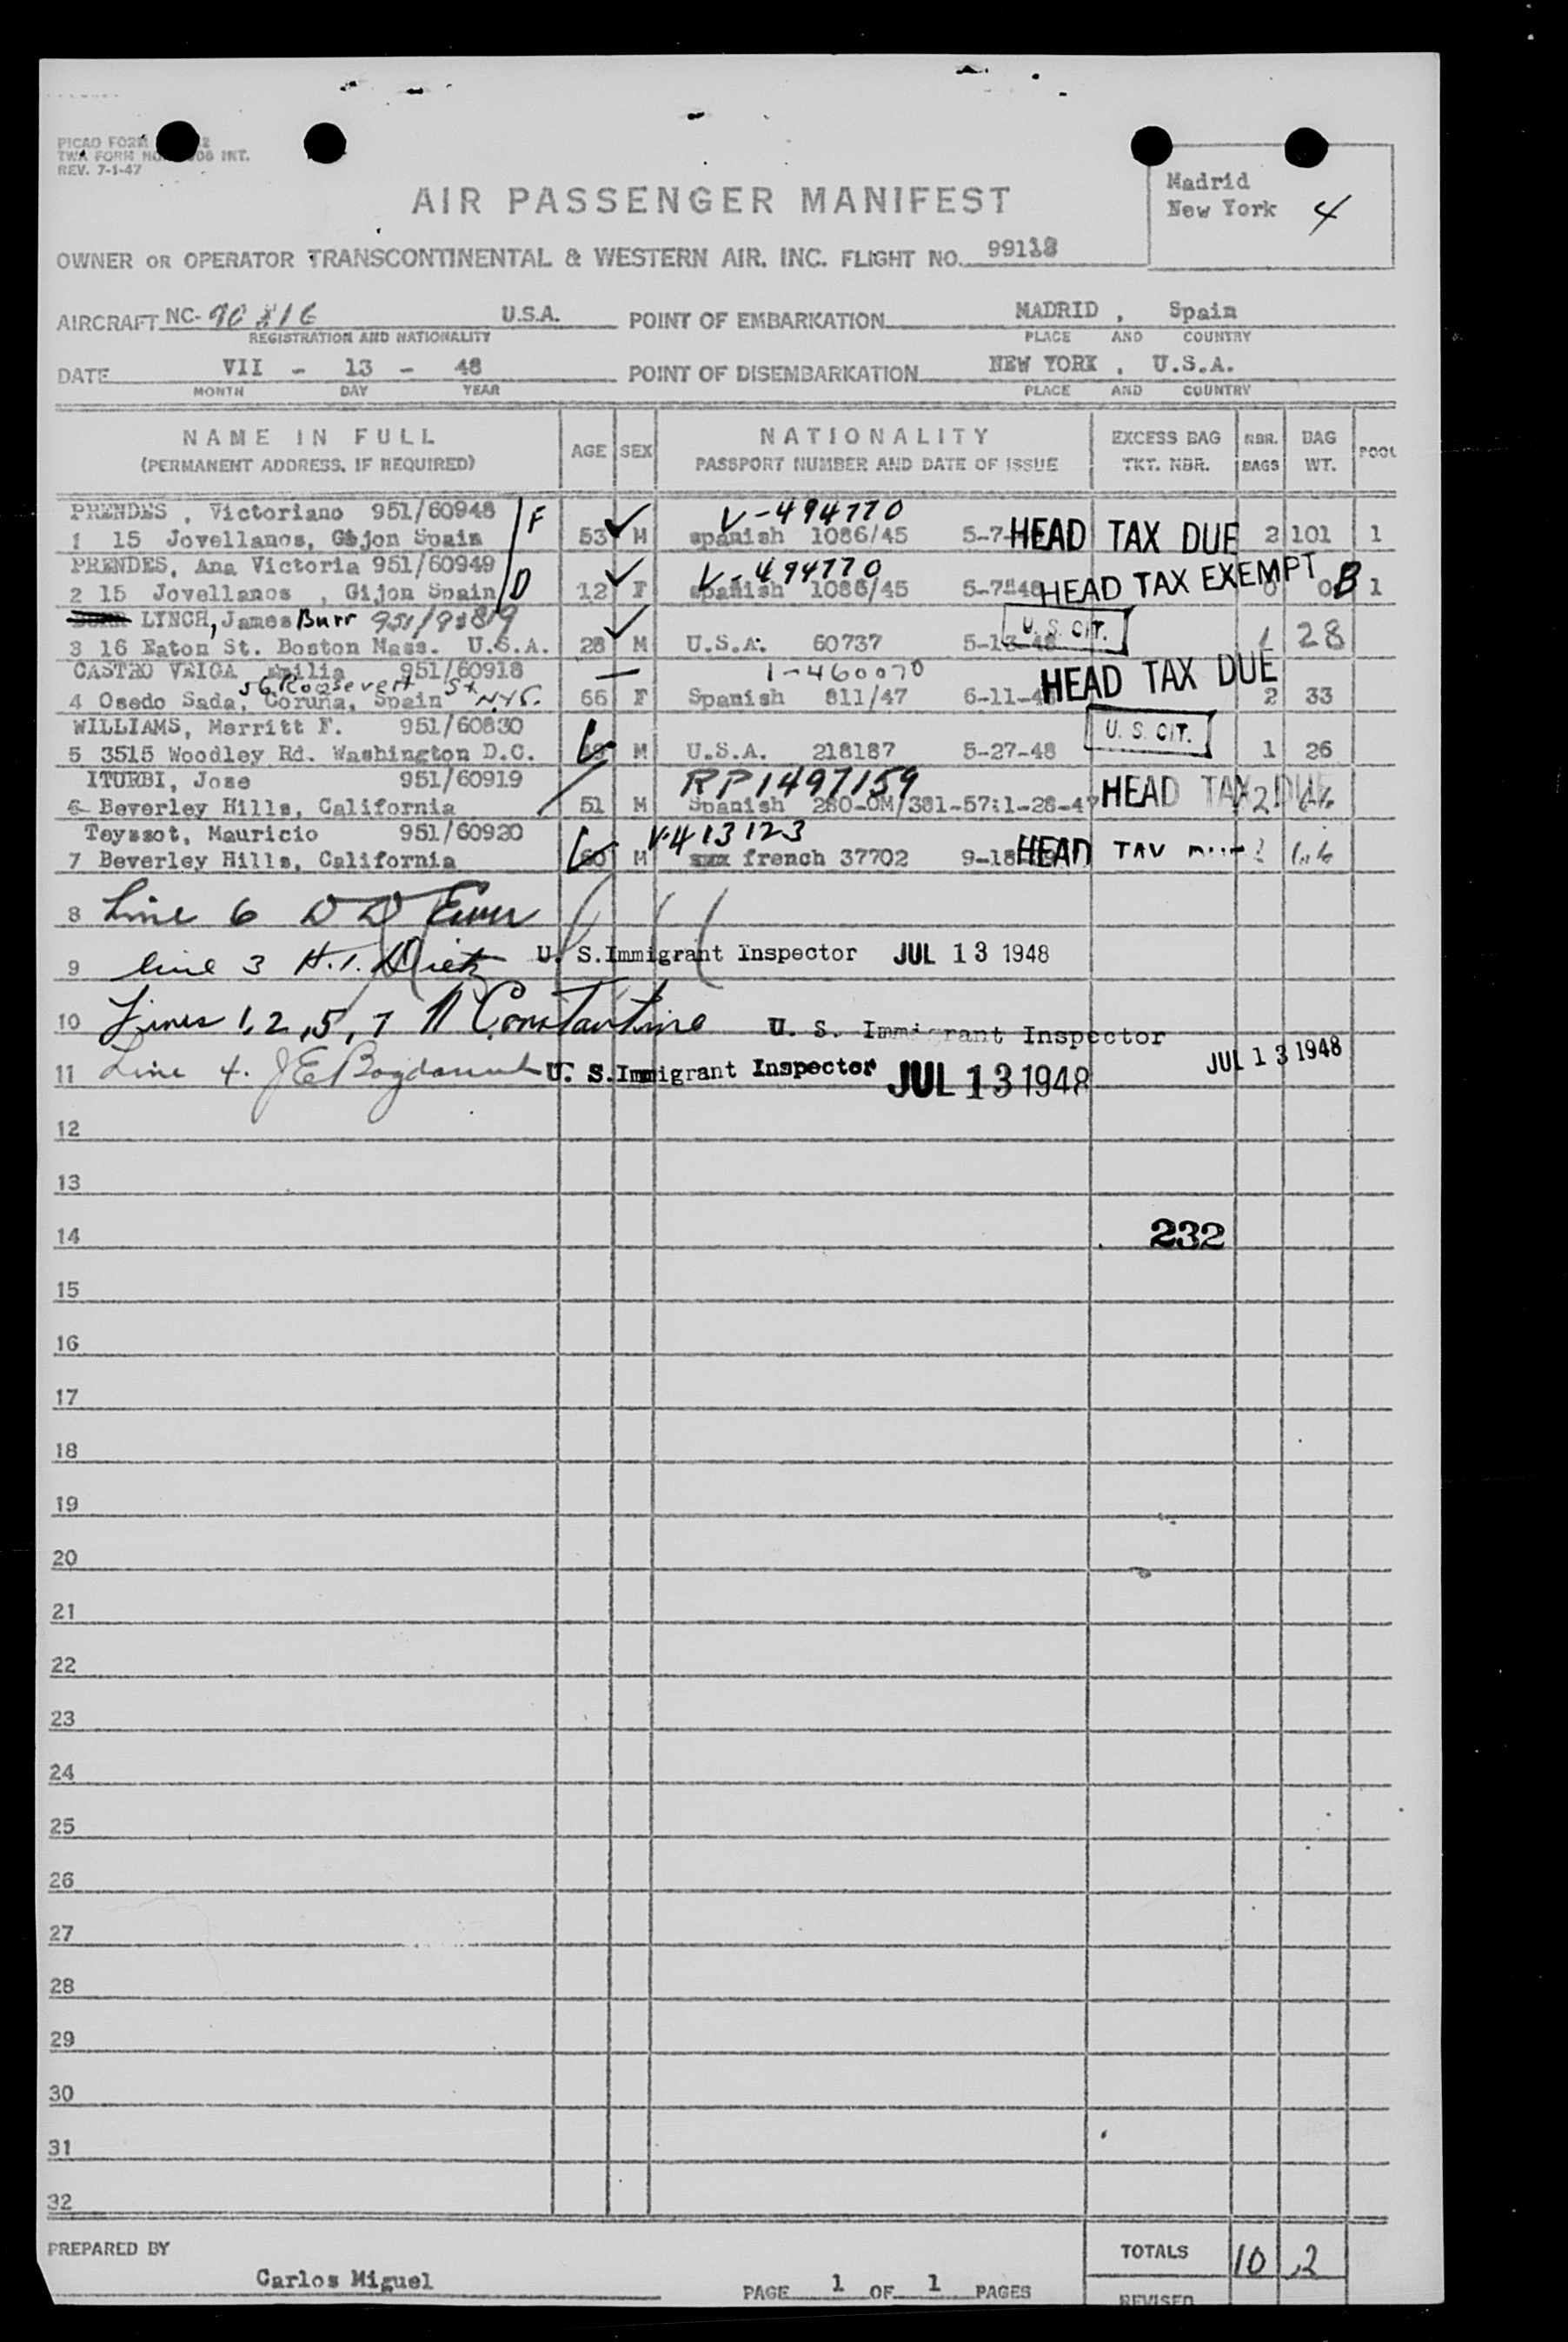 PICAO FORM
TWA FORM NO. INT.
REV. 7-1-47
Madrid
New York 4
AIR PASSENGER MANIFEST
OWNER OR OPERATOR TRANSCONTINENTAL & WESTERN AIR. INC. FLIGHT NO.
AIRCRAFT NC- U.S.A. POINT OF EMBARKATION MADRID , Spain
REGISTRATION AND NATIONALITY PLACE AND COUNTRY
DATE VII - 13 - 48 POINT OF DISEMBARKATION NEW YORK , U.S.A.
MONTH DAY YEAR PLACE AND COUNTRY
NAME IN FULL AGE SEX NATIONALITY EXCESS BAG NBR. BAG POOL
(PERMANENT ADDRESS, IF REQUIRED) PASSPORT NUMBER AND DATE OF ISSUE TKT. NBR. BAGS WT.
PRENDES , Victoriano 951/60948 F V-494770
1 15 Jovellanos, Gijon Spain 53 M spanish 1086/45 5-7- HEAD TAX DUE 2 101 1
PRENDES, Ana Victoria 951/60949 D V-494770
2 15 Jovellanos , Gijon Spain 12 F spanish 1086/45 5-7-48 HEAD TAX EXEMPT 0 0 B 1
LYNCH, James Burr U. S. CIT.
3 16 Eaton St. Boston Mass. U.S.A. 28 M U.S.A. 60737 5-13-48 1 28
CASTRO VEIGA Emilia 951/60918 1-460070
56 Roosevert St. N.Y.C.
4 Osedo Sada, Coruna, Spain F Spanish 811/47 6-11-4 HEAD TAX DUE 2 33
WILLIAMS, Merritt F. 951/60830 U. S. CIT.
5 3515 Woodley Rd. Washington D.C. M U.S.A. 218187 5-27-48 1 26
ITURBI, Jose 951/60919 RP1497159
6 Beverley Hills, California 51 M Spanish 280-OM/381-57:1-28-47 HEAD TAX DUE 2
Teyssot, Mauricio 951/60920 V-413123
7 Beverley Hills, California 60 M french 37702 9-18- HEAD TAX
8 Line 6
9 line 3 H.T. Dietz U. S. Immigrant Inspector JUL 13 1948
10 Lines 1,2,5,7 N Constantine U. S. Immigrant Inspector JUL 13 1948
11 Line 4. J E U. S. Immigrant Inspector JUL 13 1948
12
13
14 232
15
16
17
18
19
20
21
22
23
24
25
26
27
28
29
30
31
32
PREPARED BY Carlos Miguel PAGE 1 OF 1 PAGES TOTALS 10
REVISED